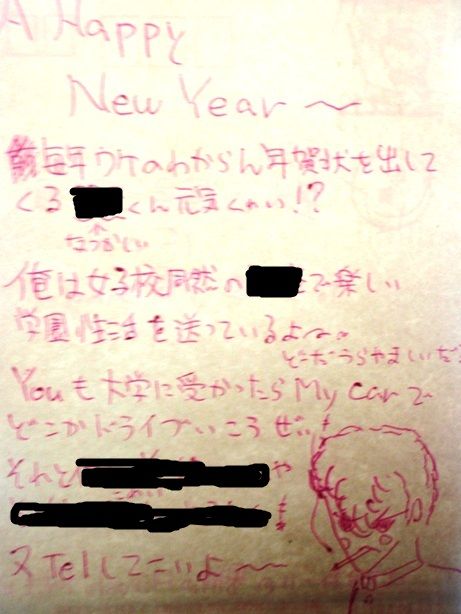 A Happy
New Year～
毎年ワケのわからん年賀状を出して
くる くん元気くわぃ!?
なつかしい
俺は女子校同然の で楽しい
学園性活を送っているよ～
どーだうらやましいだろ
Youも大学に受かったらMy carで
どこかドライブいこうぜい!
それと や
又Telしてこいよ～